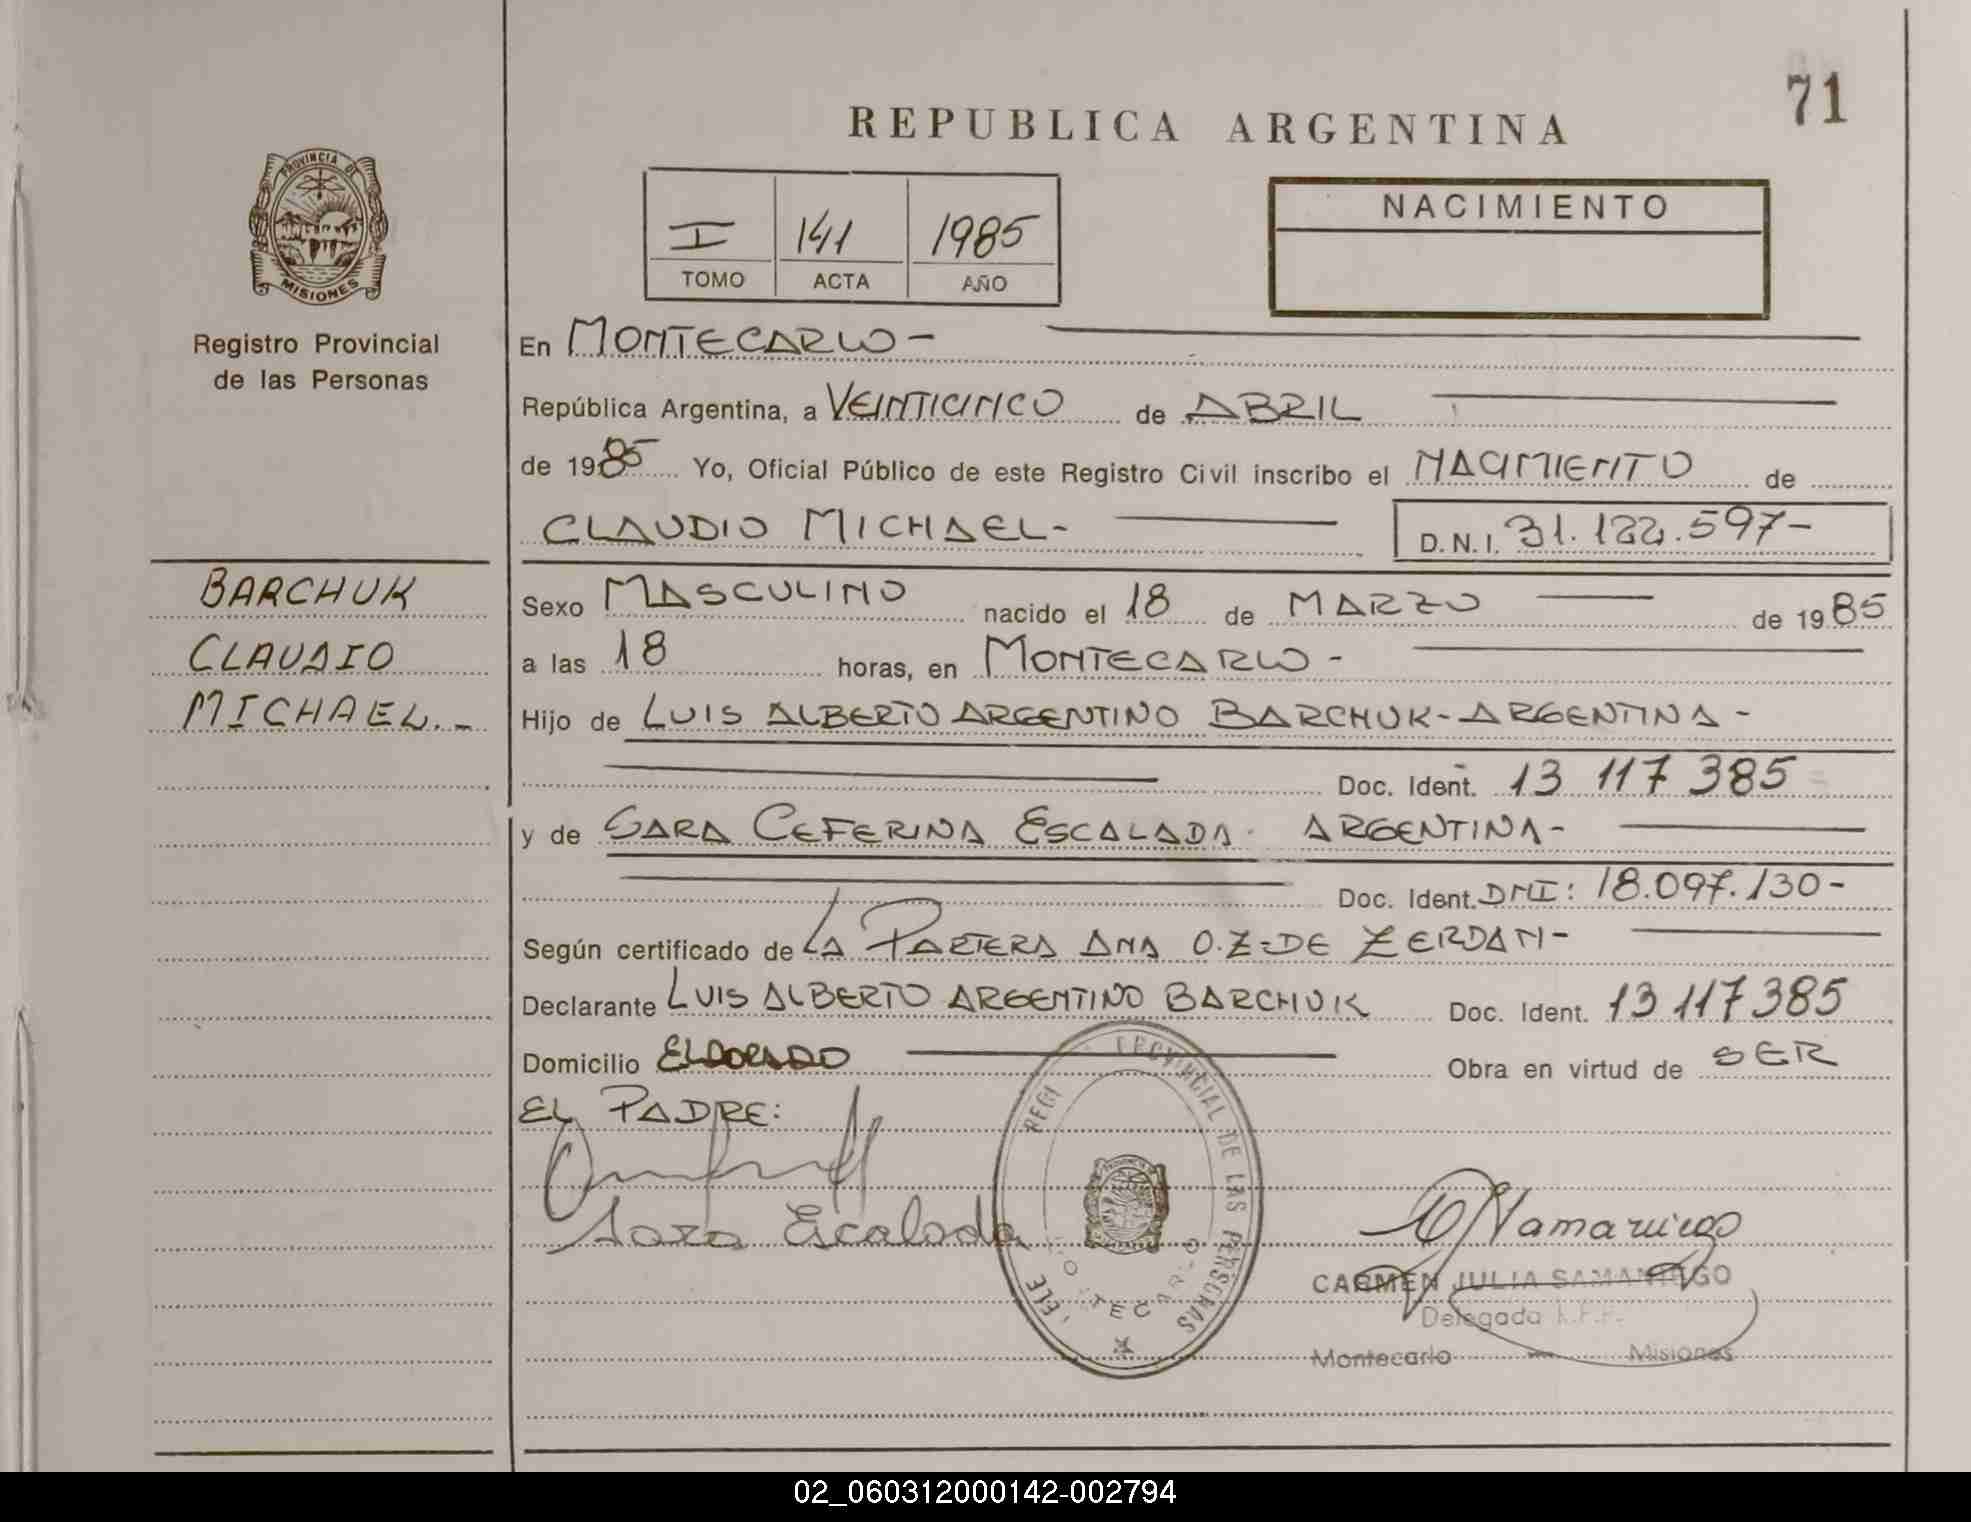 71
REPUBLICA ARGENTINA
PROVINCIA DE
MISIONES
Registro Provincial
de las Personas
I 141 1985
TOMO ACTA AÑO
NACIMIENTO
En MONTECARLO -
República Argentina, a VEINTICINCO de ABRIL
de 1985 Yo, Oficial Público de este Registro Civil inscribo el NACIMIENTO de
CLAUDIO MICHAEL - D.N.I. 31.122.597-
BARCHUK
CLAUDIO
MICHAEL.-
Sexo MASCULINO nacido el 18 de MARZO de 1985
a las 18 horas, en MONTECARLO -
Hijo de LUIS ALBERTO ARGENTINO BARCHUK - ARGENTINA -
Doc. Ident. 13 117 385
y de SARA CEFERINA ESCALADA. ARGENTINA -
Doc. Ident. DNI: 18.097.130-
Según certificado de LA PARTERA ANA O. Z. DE ZERDAN -
Declarante LUIS ALBERTO ARGENTINO BARCHUK Doc. Ident. 13 117 385
Domicilio ELDORADO Obra en virtud de SER
EL PADRE:
Sara Escalada
PROVINCIAL DE LAS PERSONAS
CARMEN JULIA SAMANIEGO
Delegada
Montecarlo - Misiones
02_060312000142-002794